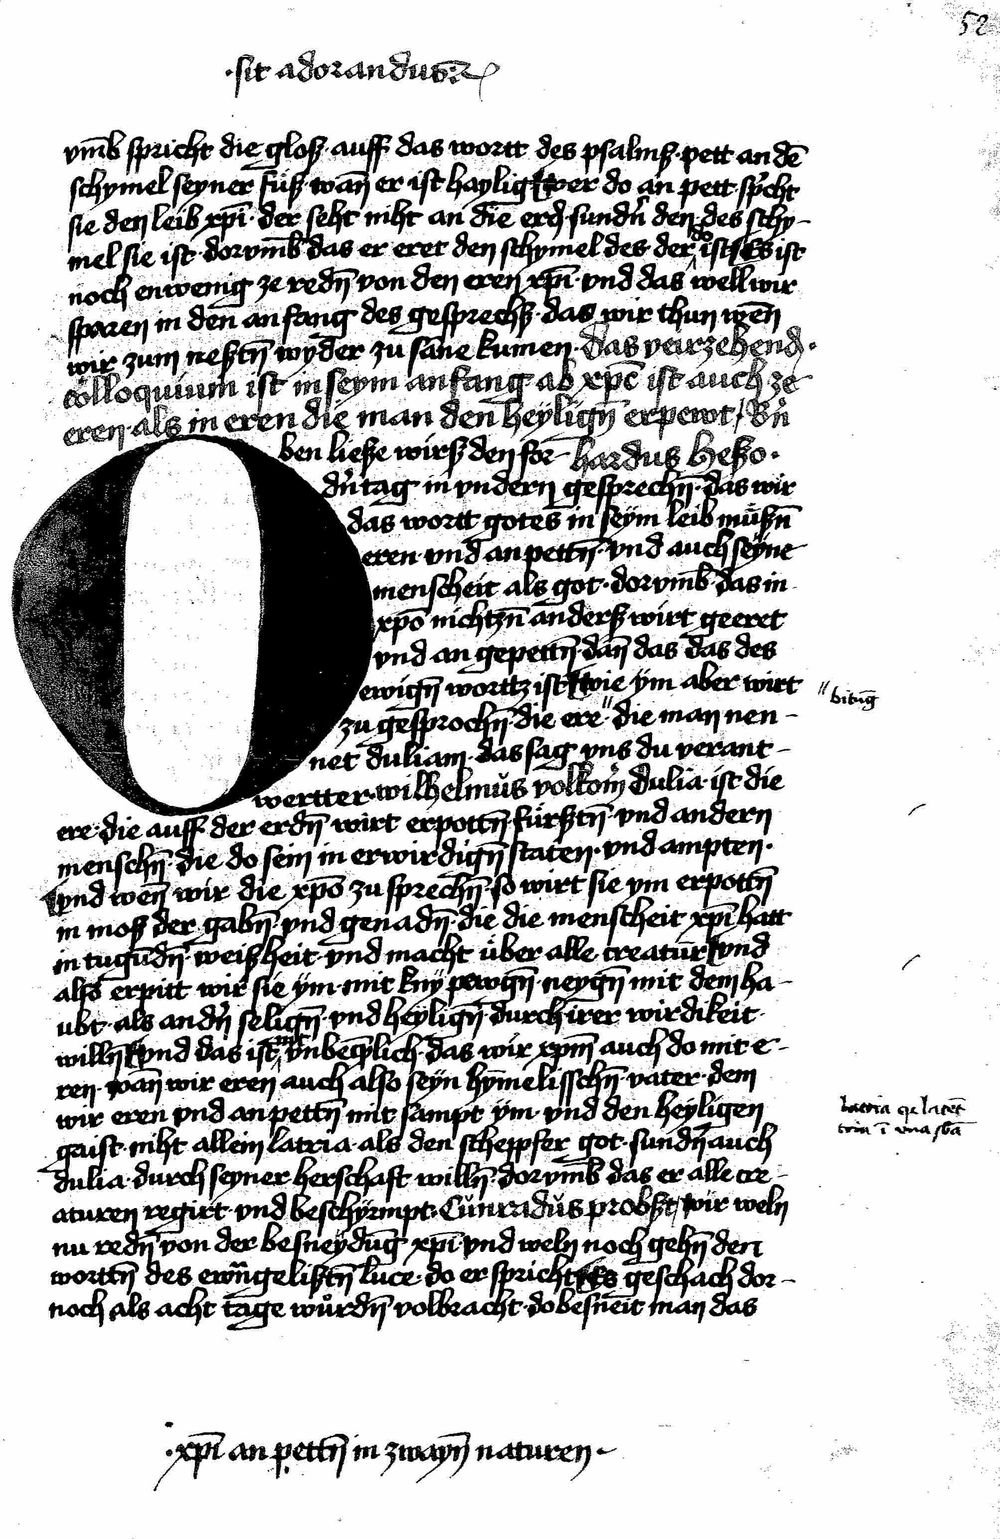 52
·sit adorandus·
vm̄b spricht die gloß· auff das wortt des psalmß· pett an dē
schymel seyner füß· wan̄ er ist haylig wer do an pett· sp̄cht
sie den leib xp̄i· der seht niht an die erd· sundn̄ den· des schy-
mel sie ist· dorvm̄b das er eret den schymel des der do ist Es ist
noch enwenig ze redn̄ von den eren xp̄i· vnd das well wir
sparen in den anfang des gesprechß· das wir thun wen̄
wir zum neßtn̄ wyder zu same kumen· das veirzehend·
colloquium ist in seym anfang· ab xp̄c ist auch ze
eren· als in eren die man den heylign̄ erpewt/
ben ließe wirß den for- hardus Heßo·
dn̄tag in vndern gesprechn̄· das wir
das wortt gotes in seym leib mußn̄
eren· vnd an pettn̄· vnd auch seyne
menscheit als got· dorvm̄b das in
xp̄o nichtzn̄ anderß wirt geeret
vnd an gepettn̄· dan̄ das das des
ewign̄ worttz ist wie ym aber wirt
zu gesprochn̄ die ere" die man nen-
" bituḡ
net duliam· das sag vns du verant-
wertter· wilhelmus volkom̄ dulia· ist die
ere· die auff der erdn̄ wirt erpottn̄· fürßtn̄· vnd andern
menschn̄· die do sein in erwirdign̄ staten· vnd ampten·
vnd wen̄ wir die xp̄o zu sprechn̄· so wirt sie ym erpottn̄
in moß der gabn̄· vnd genadn̄· die die menscheit xp̄i hatt
in tugūdn̄· weißheit· vnd macht über alle creatur vnd
alßo erpitt wir sie ym· mit kny pewgn̄· neygn̄ mit dem ha-
ubt· als andn̄ selign̄· vnd heylign̄· durch irer wirdikeit
willn̄ vnd das ist nit vnbeq̄lich· das wir xp̄m̄ auch do mit e-
ren· wan̄ wir eren auch alßo seyn hym̄elisschn̄ vater· dem
wir eren vnd an pettn̄ mit sampt ym· vnd den heyligen
gaist· niht allein latria· als den schepfer got· sundn̄ auch
dulia· durch seyner herschaft willn̄· dorvm̄b das er alle cre-
aturen regirt· vnd beschyrmpt· Cunradus probßt/ wir weln
nu redn̄ von der besneydūg xp̄i· vnd weln noch gehn̄ den
worttn̄ des ewāngelißtn̄ luce· do er spricht Es geschach dor-
noch als acht tage wurdn̄ volbracht· do besneit man das
·xp̄i an pettn̄ in zwayn̄ naturen·